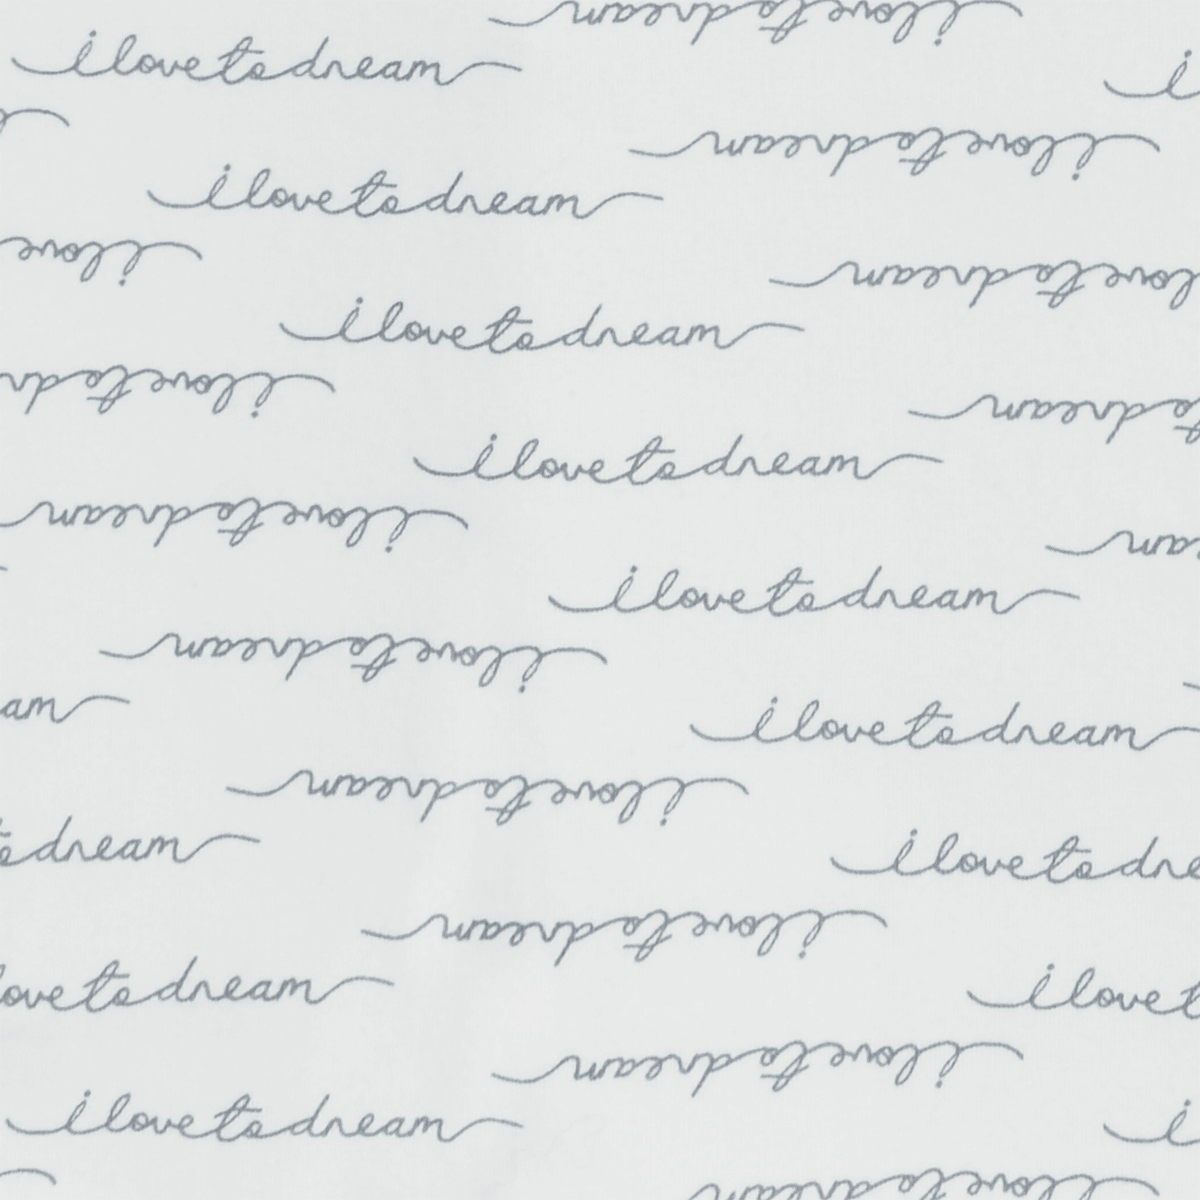 i love to dream
i love to dream
i
i love to dream
i love to dream
i love
love to dream
i love to dream
i love to dr
to dream
i love to dream
i love to dream
am
i love to dream
i love to dream
am
i love to dream
i love to dream
o dream
i love to dre
i love to dream
ove to dream
i love t
i love to dream
i love to dream
i
i love to dream